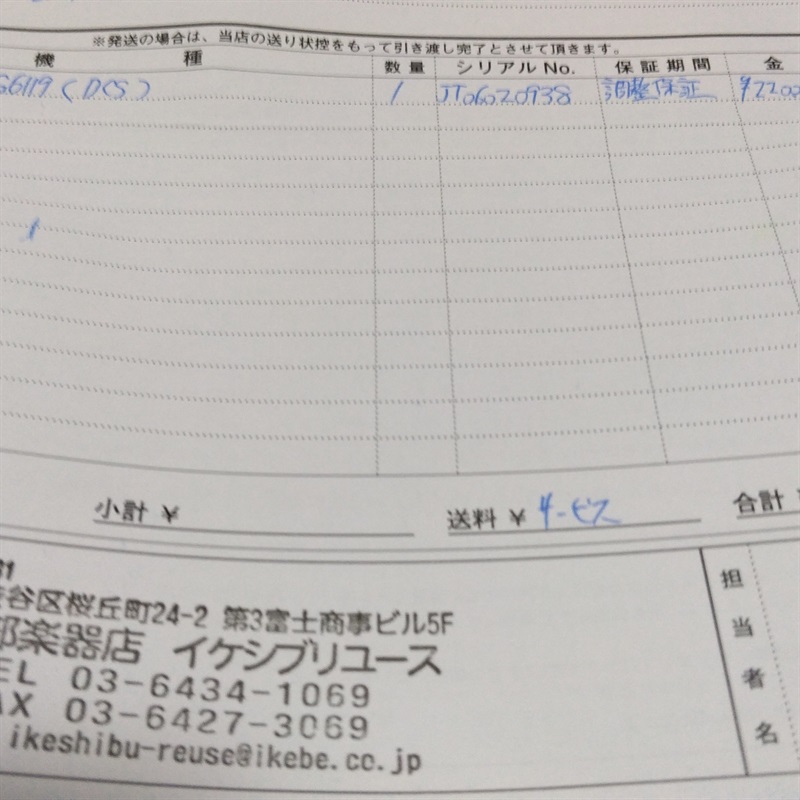 ※発送の場合は、当店の送り状控をもって引き渡し完了とさせて頂きます。
機 種 数量 シリアルNo. 保証期間 金
G6119 (DCS) 1 JT06020938 調整保証 ¥2200
小計 ¥ 送料 ¥ サービス 合計
31
渋谷区桜丘町24-2 第3富士商事ビル5F
部楽器店 イケシブリユース
TEL 03-6434-1069
FAX 03-6427-3069
ikeshibu-reuse@ikebe.co.jp
担当者名